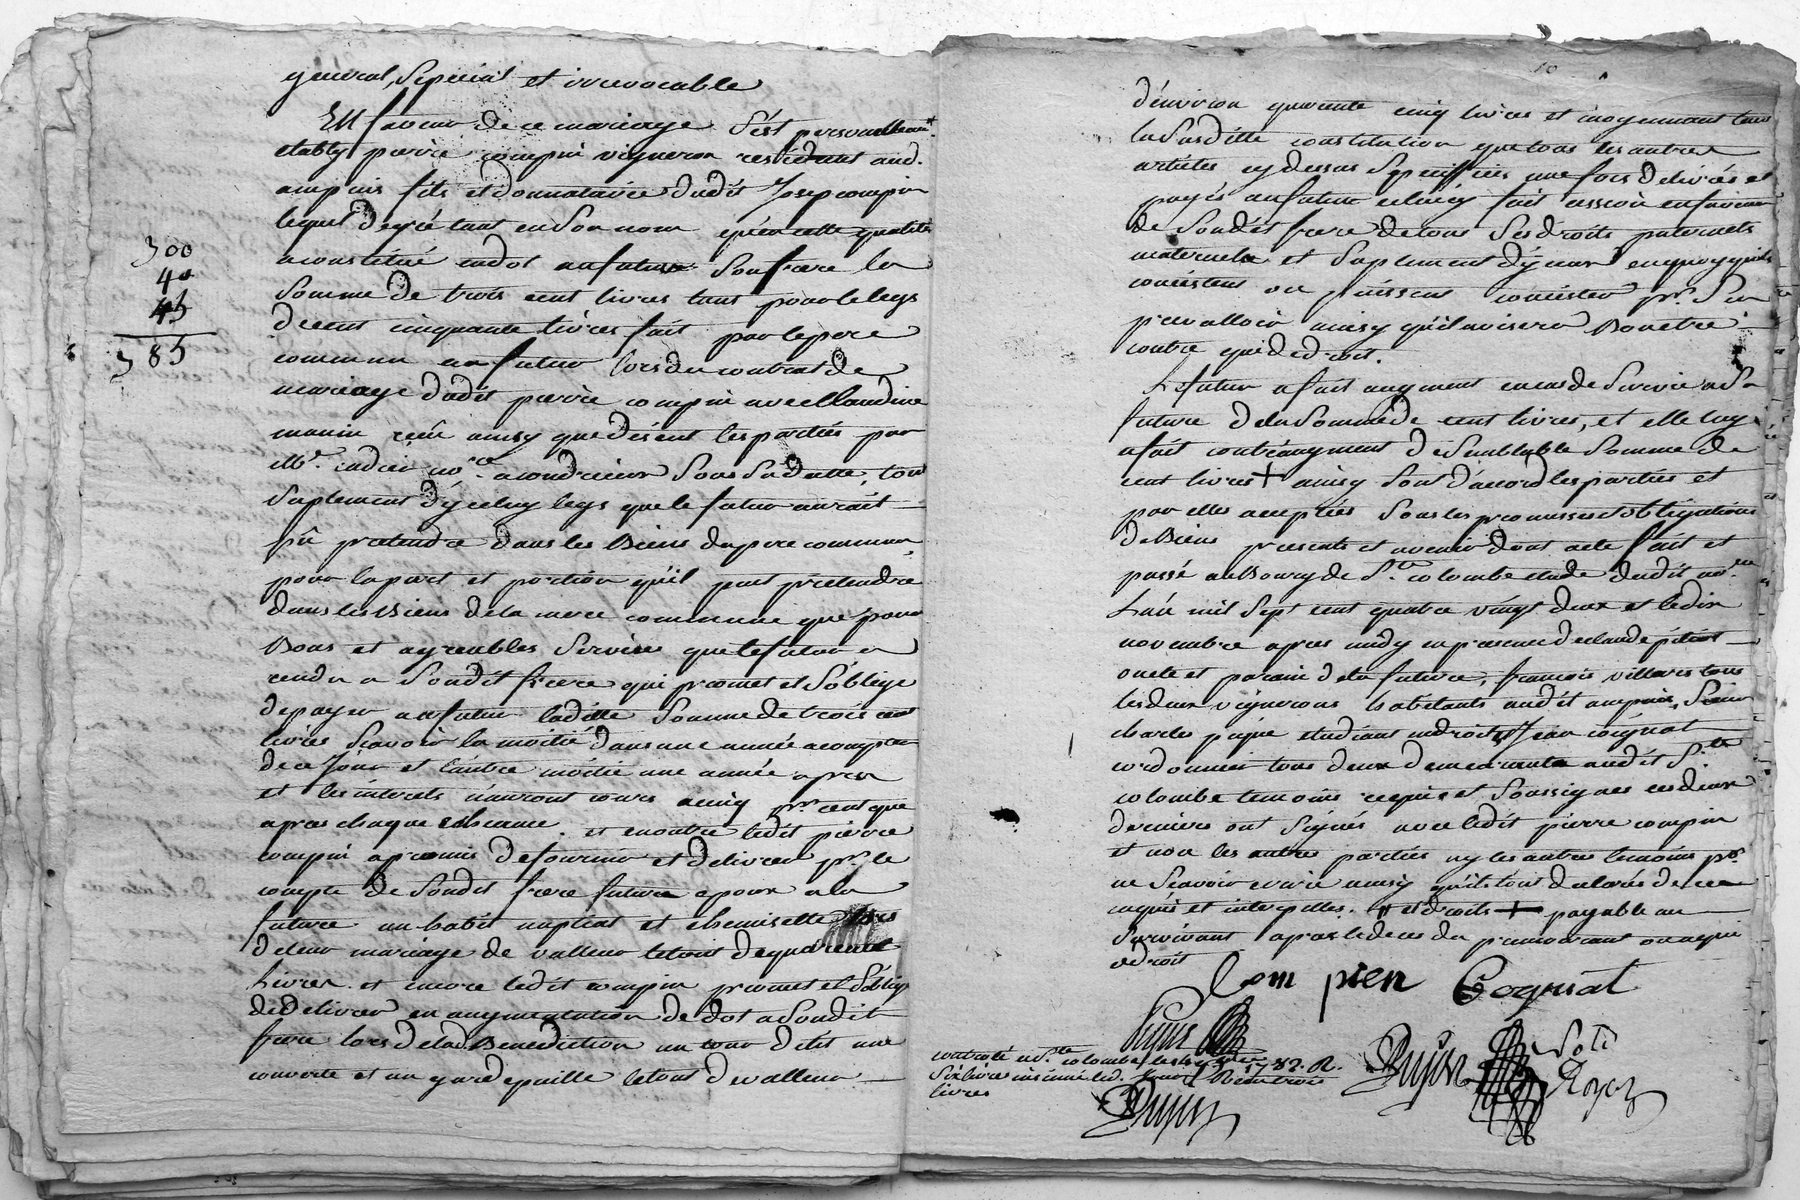 general, special et irrevocable
En faveur de ce mariage s'est personnellemt
etably pierre compin vigneron residant aud.
ampuis fils et donnataire dudit Josep compin
lequel de gré tant en son nom qu'en cette qualité
a constitué en dot au futur son frere la
somme de trois cent livres tant pour le legs
de cent cinquante livres fait par le pere
commun au futur lors du contrat de
mariage dudit pierre compin avec Claudine
recu ainsy que disent les parties par
Me. cadier nore. a condrieux sous sa datte, tout
suplement d'yceluy legs que le futur auroit
pû pretendre dans les Biens du pere commun,
pour la part et portion qu'il peut pretendre
dans les Biens de la mere commune que pour
Bons et agreables services que le futur a
rendu a sondit frere qui promet et s'oblige
de payer au futur laditte somme de trois cent
livres scavoir la moitié dans une année a compter
de ce Jour et l'autre moitié une année apres
et les interets n'auront cours ainsy que
apres chaque echeance. et en outre ledit pierre
compin a promis de fournir et delivrer pr. le
compte de sondit frere futur epoux a la
future un habit nuptial et chemisette lors
de leur mariage de valleur le tout de quarente
livres. et encore ledit compin promet et s'oblige
de delivrer en augmentation de dot a sondit
frere lors de lad. Benediction un tour de lit une
couverte et un garde paille le tout de valleur
300
40
45
385
10
d'environ quarente cinq livres et moyennant tant
la susditte constitution que tous les autres
articles cy dessus speciffiés une fois delivrés et
payés au futur celuicy fait cession en faveur
de sondit frere de tous ses droits paternels
maternels et suplement d'yceux en quoy qu'ils
consistent ou puissent consister pr. s'en
prevalloir ainsy qu'il avisera Bon etre
contre qui de droit.
Le futur a fait augment en cas de survie a sa
future de la somme de cent livres, et elle luy
a fait contr'augment de semblable somme de
cent livres + ainsy sont d'accord les parties et
par elles acceptées sous les promesses obligations
de Biens presents et avenir dont acte fait et
passé au Bourg de Ste. colombe etude dudit nore.
L'an mil sept cent quatre vingt deux et le dix
novembre apres midy en presence de claude
oncle et parain de la future, francois villars tous
les deux vignerons habitants audit ampuis, sieur
charles etudiant en droit, et Jean cognat
cordonnier tous deux demeurants audit Ste.
colombe temoins requis et soussignes ces deux
derniers ont signés avec ledit pierre compin
et non les autres parties ny les autres temoins pr.
ne scavoir ecrire ainsy qu'ils l'ont declarés de ce
requis et interpelles. # et droits + payable au
survivant apres le deces du premourant ou a qui
de droit
Com pien Cognat
controlé a Ste. colombe 1782. R.
six livres insinué led. jour Reçu trois
livres